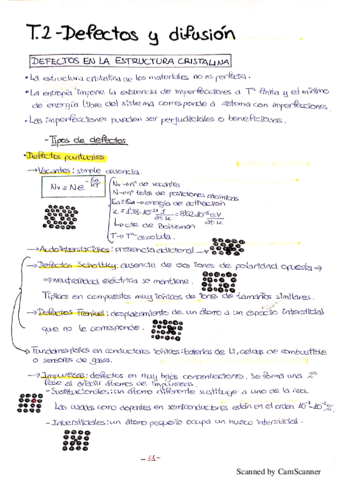 T.2-Defectos y difusión
DEFECTOS EN LA ESTRUCTURA CRISTALINA
• La estructura cristalina de los materiales no es perfecta.
• La entropía impone la existencia de imperfecciones a Tª finita y el mínimo
de energía libre del sistema corresponde a sistema con imperfecciones.
• Las imperfecciones pueden ser perjudiciales o beneficiosas.
- Tipos de defectos
• Defectos puntuales
→ Vacantes: simple ausencia.
Nv → nº de vacantes
N → nº total de posiciones atómicas
Ea → energía de activación
Cte de Boltzman
T → Tª absoluta.
→ Autointersticiales: presencia adicional
→ Defectos Schottky: ausencia de dos iones de polaridad opuesta →
→ neutralidad eléctrica se mantiene.
Típicos en compuestos muy iónicos de iones de tamaños similares.
→ Defectos Frenkel: desplazamiento de un átomo a un espacio intersticial
que no le corresponde.
Fundamentales en conductores iónicos: baterías de Li, celdas de combustible
o sensores de gases.
→ Impurezas: defectos en muy bajas concentraciones. Se forma una 2ª
fase al añadir átomos de impurezas.
- Sustitucionales: un átomo diferente sustituye a uno de la red.
Las usadas como dopantes en semiconductores están en el orden
- Intersticiales: un átomo pequeño ocupa un hueco intersticial.
Scanned by CamScanner